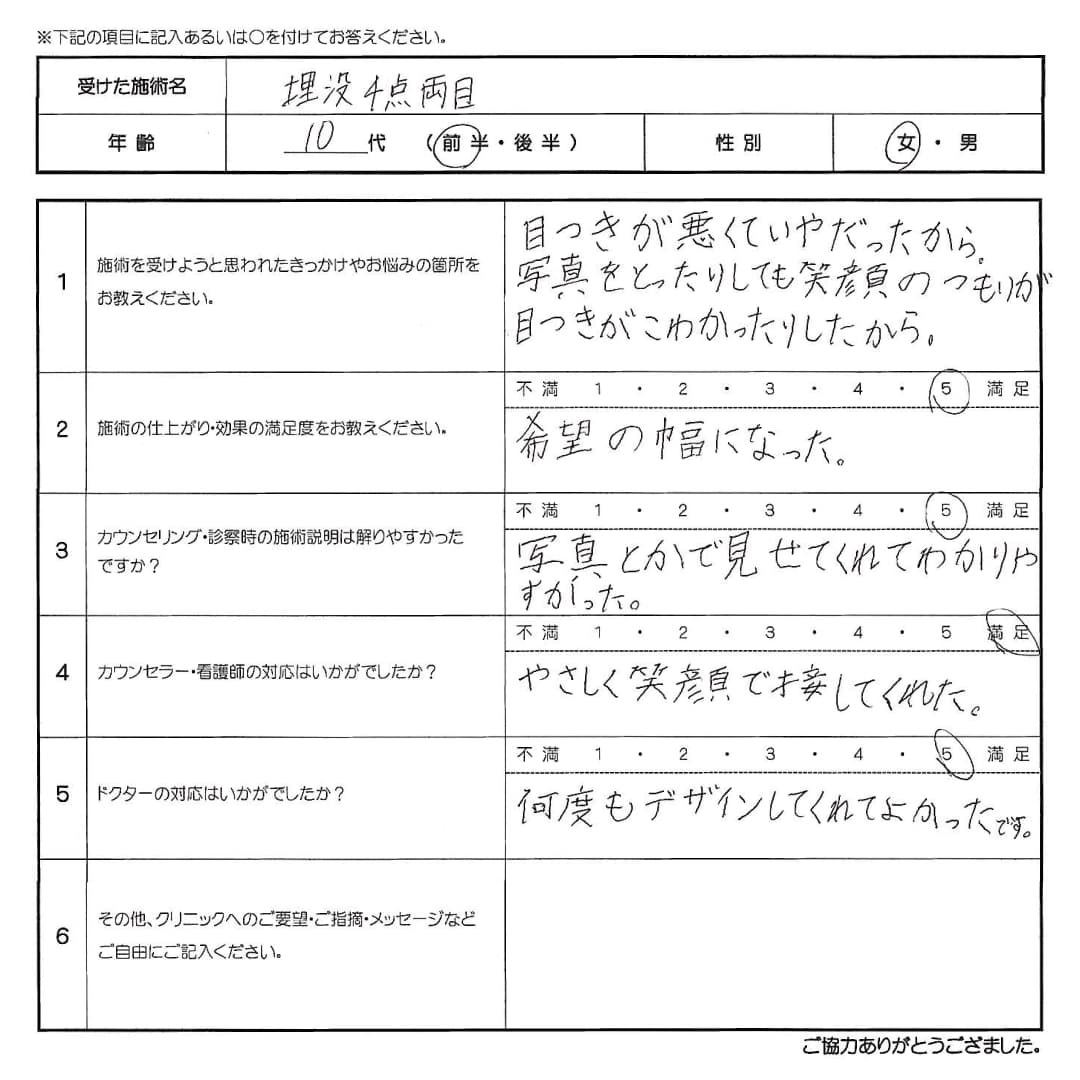 ※下記の項目に記入あるいは〇を付けてお答えください。
受けた施術名 埋没4点両目
年齢 10代 (前半・後半) 性別 女・男
1 施術を受けようと思われたきっかけやお悩みの箇所を
お教えください。
目つきが悪くていやだったから。
写真をとったりしても笑顔のつもりが
目つきがこわかったりしたから。
2 施術の仕上がり・効果の満足度をお教えください。
不満 1 ・ 2 ・ 3 ・ 4 ・ 5 満足
希望の幅になった。
3 カウンセリング・診察時の施術説明は解りやすかった
ですか？
不満 1 ・ 2 ・ 3 ・ 4 ・ 5 満足
写真とかで見せてくれてわかりや
すかった。
4 カウンセラー・看護師の対応はいかがでしたか？
不満 1 ・ 2 ・ 3 ・ 4 ・ 5 満足
やさしく笑顔で接してくれた。
5 ドクターの対応はいかがでしたか？
不満 1 ・ 2 ・ 3 ・ 4 ・ 5 満足
何度もデザインしてくれてよかったです。
6 その他、クリニックへのご要望・ご指摘・メッセージなど
ご自由にご記入ください。
ご協力ありがとうござました。